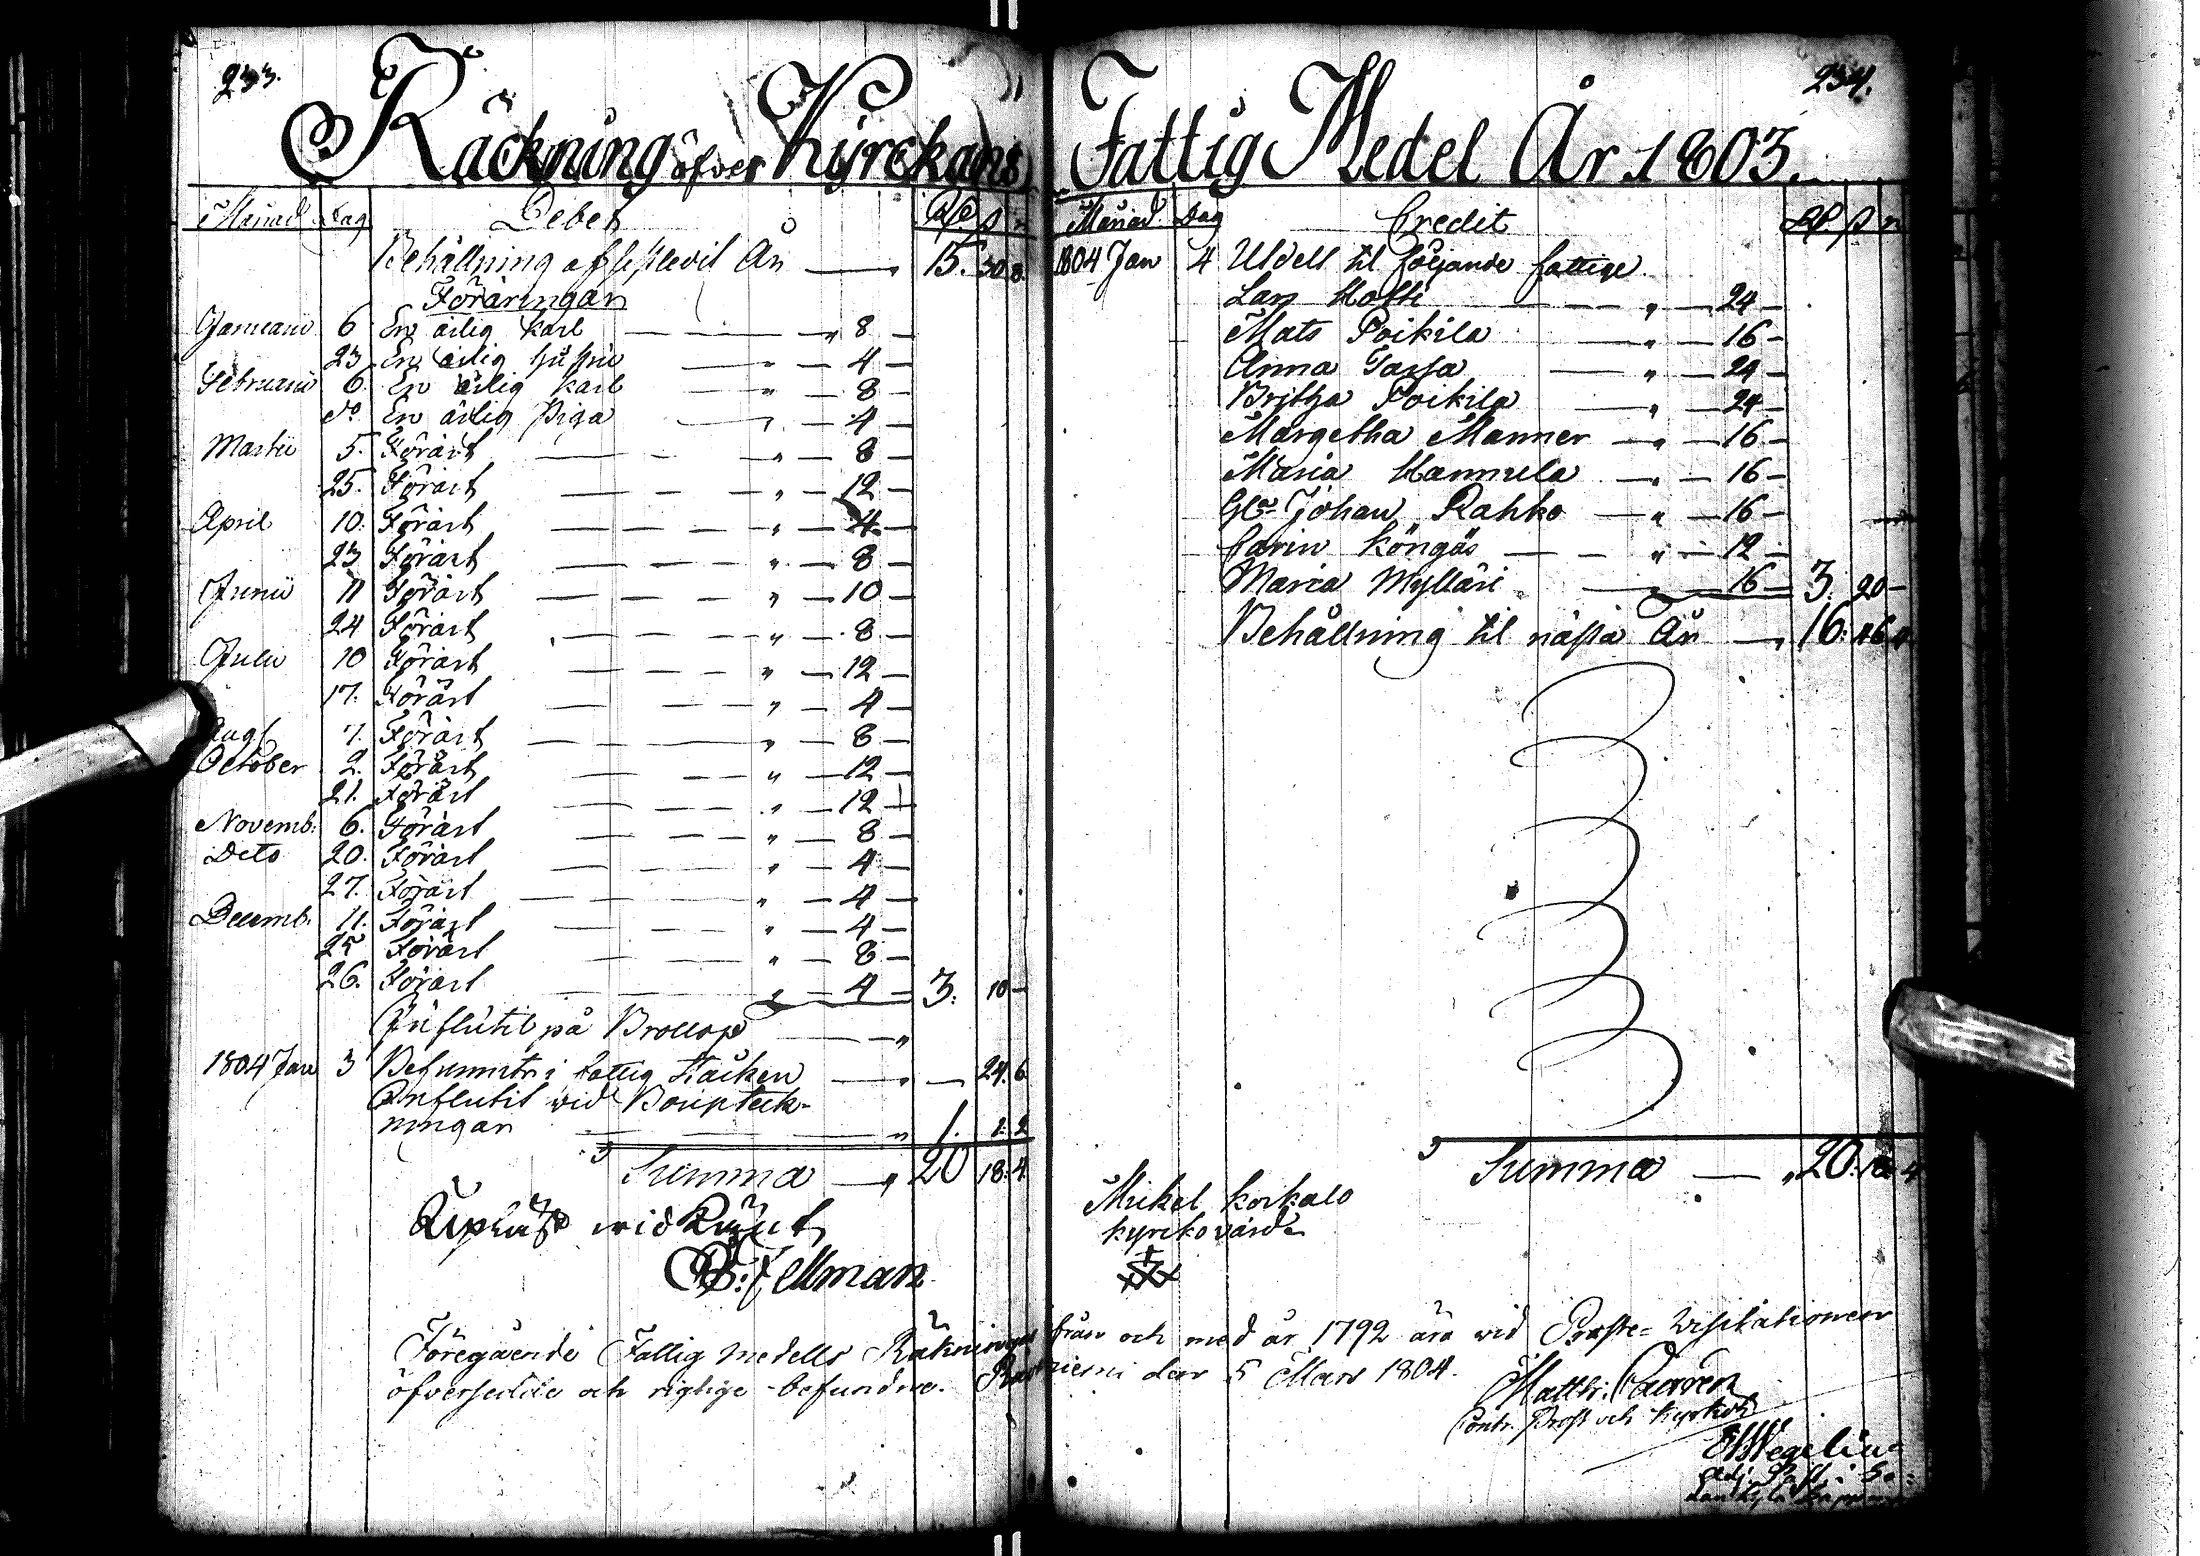 233.
Räckning öfver Kyrckans
Månad Dag Debet Rd ß r
Behållning afsistlevit År — 15. 30. 8.
Föräringar
Januarii 6 En ärlig karl — " — 8 —
23 En ärlig hustru — " — 4 —
Februarii 6. En ärlig karl — " — 8 —
do En ärlig Piga — " — 4 —
Martii 5. Förärt — " — 8 —
25. Förärt — " — 12 —
April 10. Förärt — " — 4 —
23 Förärt — " — 8 —
Junii 11 Förärt — " — 10 —
24 Förärt — " — 8 —
Julii 10 Förärt — " — 12 —
17. Förärt — " — 4 —
Augt 7. Förärt — " — 8 —
October 2. Förärt — " — 12 —
21. Förärt — " — 12 —
Novemb: 6. Förärt — " — 8 —
Dito 20. Förärt — " — 4 —
27. Förärt — " — 4 —
Decemb. 11. Förärt — " — 4 —
25 Förärt — " — 8 —
26. Förärt — " — 4 — 3. 10 —
Influtit på Brollop — "
1804 Jan 3 Befunnits i fattig Stäcken — " — 24. 6
Influtit wid Boupteck-
ningar — " 1. 1. 2
Summa — " 20 18. 4
wid
B: Fellman
Föregående Fattig medells Räkningar från och med år 1792 äro wid Proste-Wisitationen
öfversedde och rigtige befundne. den 5 Mars 1804.
234.
Fattig Medel År 1803.
Månad Dag Credit Rd ß r
1804 Jan 4 Utdelt til följande fattige
Lars — " — 24 —
Mats Poikila — " — 16 —
Anna — " — 24 —
Britha Poikila — " — 24 —
Margetha Manner — " — 16 —
Maria Hannula — " — 16 —
Gla Johan Rahko — " — 16 —
Carin Köngäs — " — 12 —
Maria Mylläri — 16 — 3. 20 —
Behållning til nästa År — " 16. 46. 4
Summa — " 20. 18. 4
Mickel Korkalo
kyrkovärd
Matth: Castrén
Contr. Prost och Kyrkoh
Wegelius